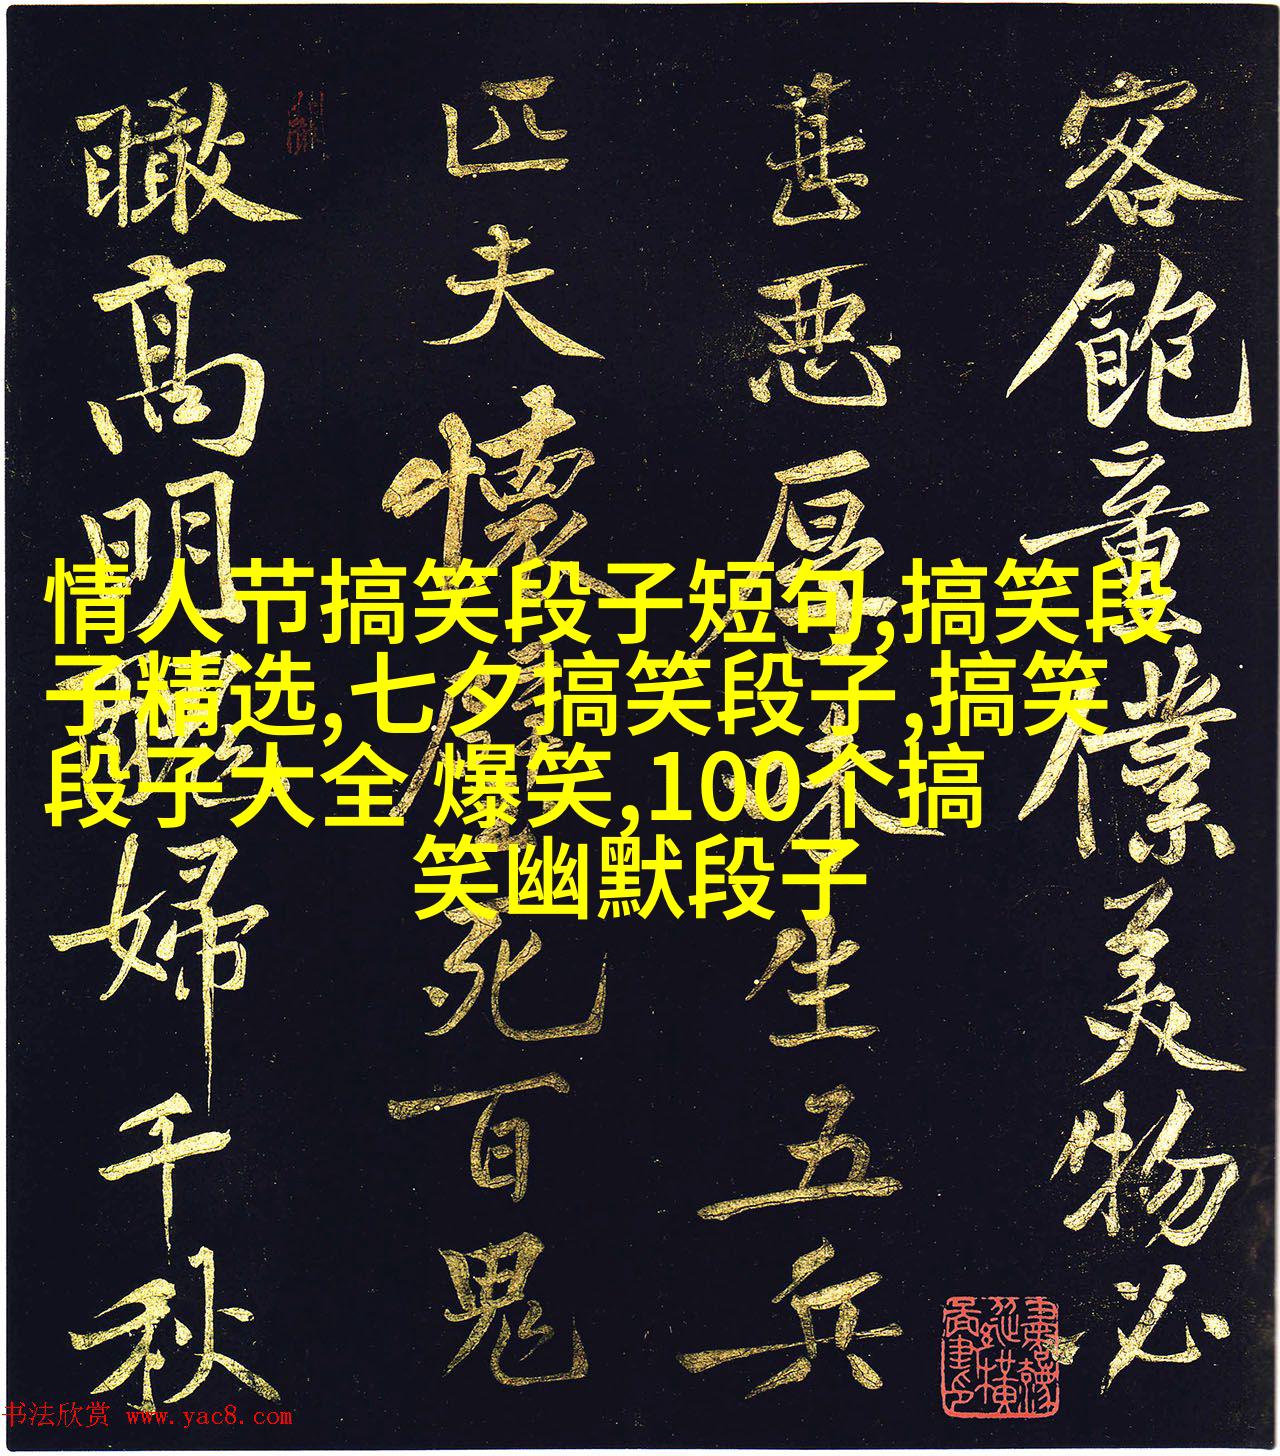 情人节搞笑段子短句,搞笑段
子精选,七夕搞笑段子,搞笑
段子大全 爆笑,100个搞
笑幽默段子
客飽童僕美物必
甚惡厚味生五兵
匹夫懷璧死百鬼
瞰高明醜婦千秋
书法欣赏 www.yac8.com